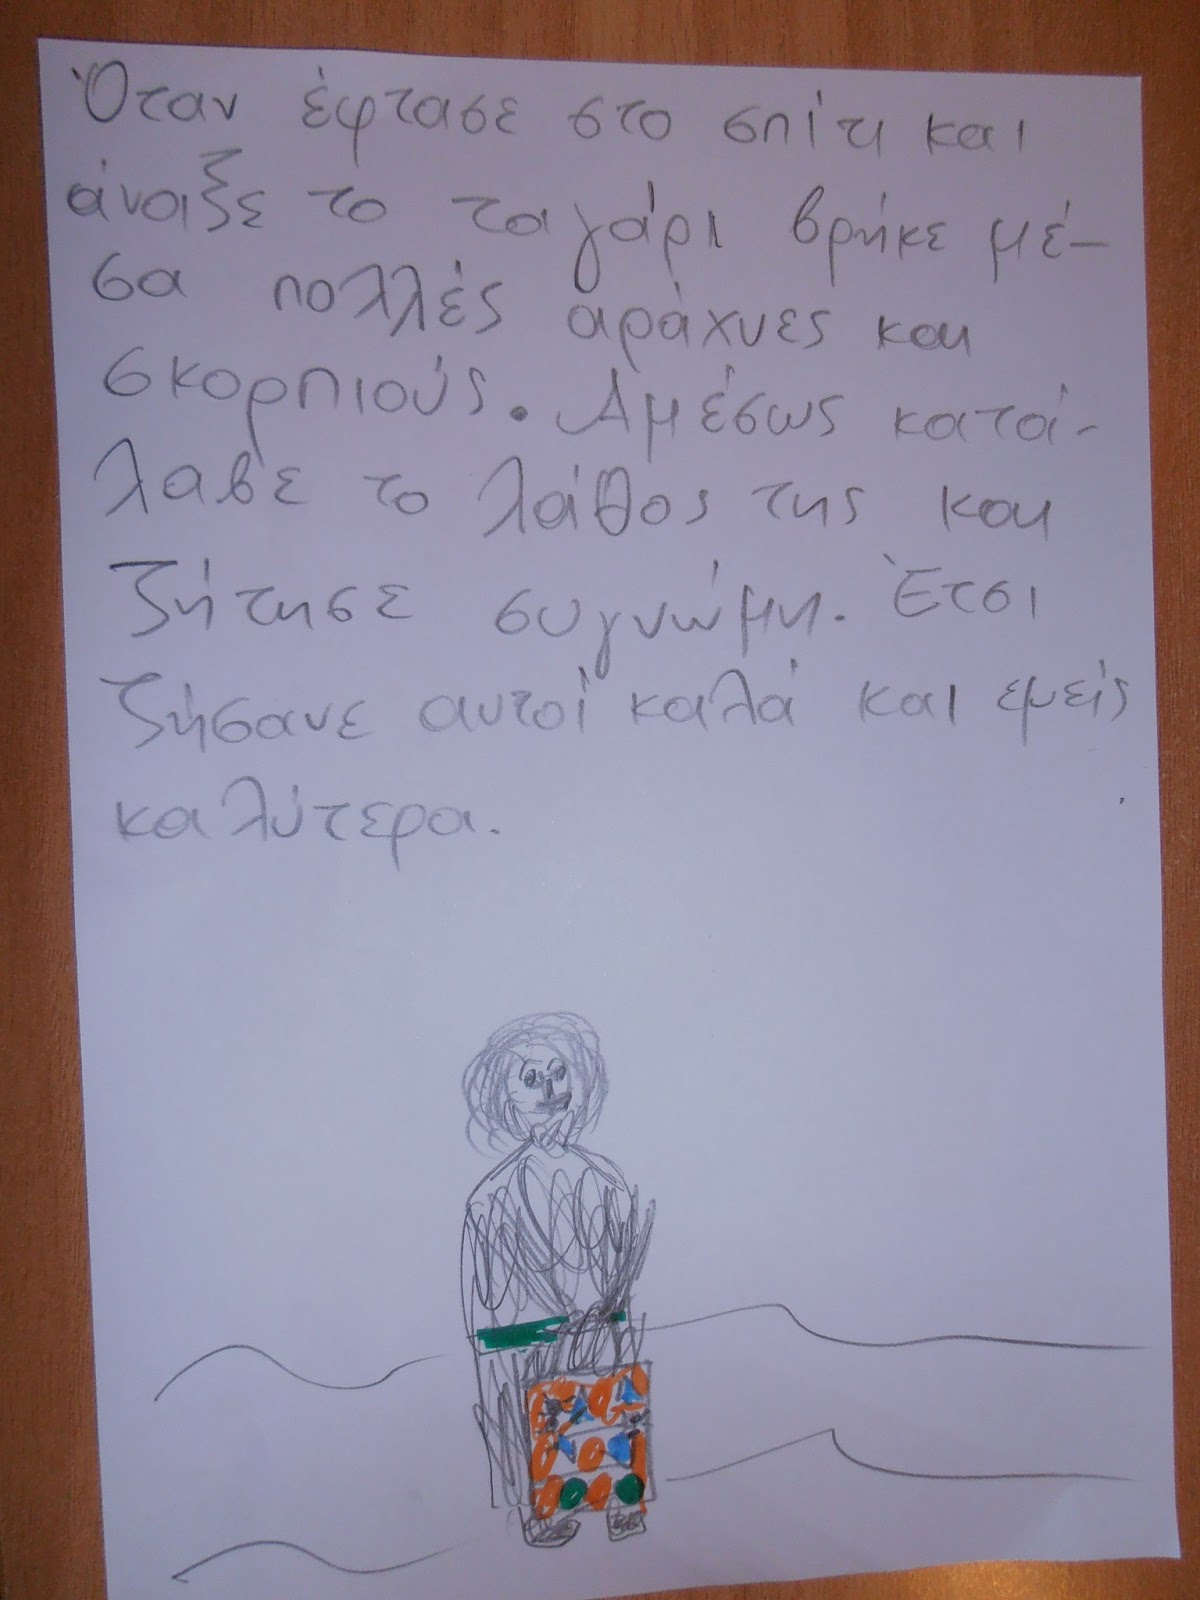 Όταν έφτασε στο σπίτι και
άνοιξε το ταγάρι βρήκε μέ-
σα πολλές αράχνες και
σκορπιούς. Αμέσως κατά-
λαβε το λάθος της και
ζήτησε συγνώμη. Έτσι
ζήσανε αυτοί καλά και εμείς
καλύτερα.